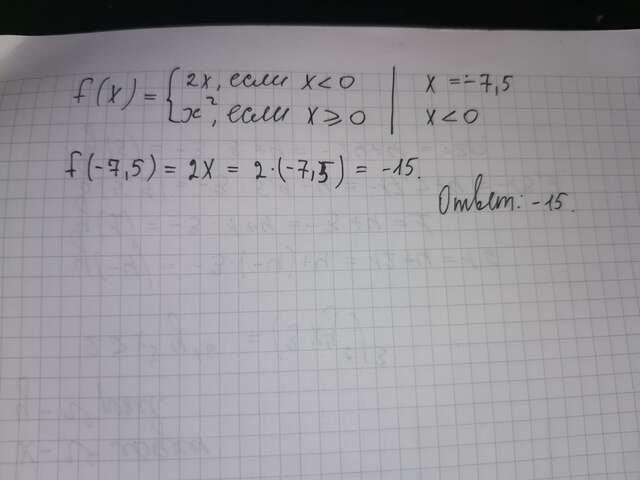 f(x) = { 2x, если x < 0 | x = -7,5
x², если x ⩾ 0 | x < 0
f(-7,5) = 2x = 2·(-7,5) = -15.
Ответ: -15.